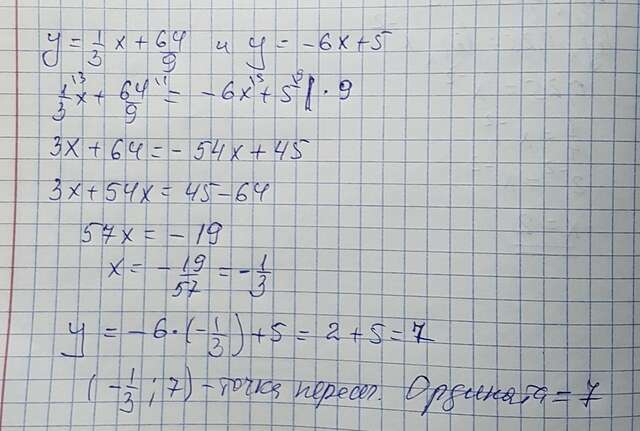 y = 1/3 x + 64/9 и y = -6x + 5
1/3 x + 64/9 = -6x + 5 | · 9
3x + 64 = - 54x + 45
3x + 54x = 45 - 64
57x = - 19
x = - 19/57 = - 1/3
y = -6 · (-1/3) + 5 = 2 + 5 = 7
(-1/3 ; 7) - точка пересеч. Ордината = 7